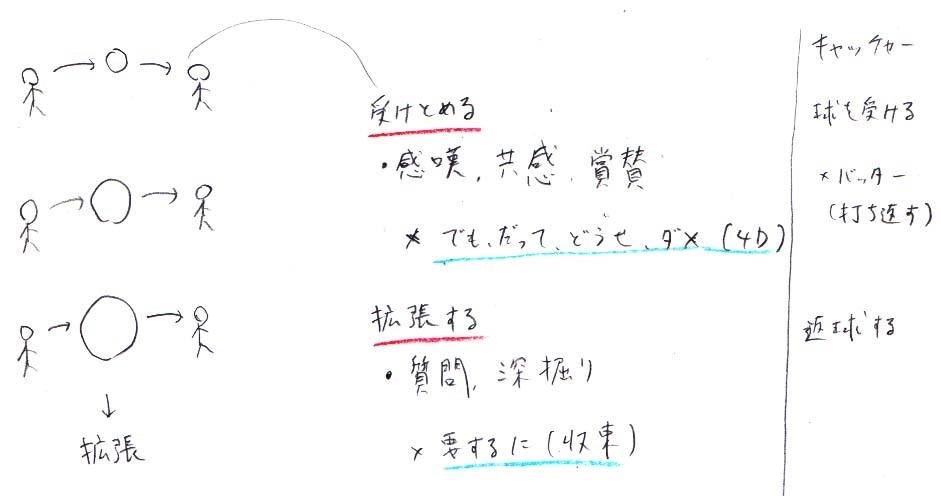 受けとめる
・感嘆、共感、賞賛
× でも、だって、どうせ、ダメ (4D)
拡張する
・質問、深掘り
× 要するに (収束)
↓
拡張
キャッチャー
球を受ける
× バッター
(打ち返す)
返球する